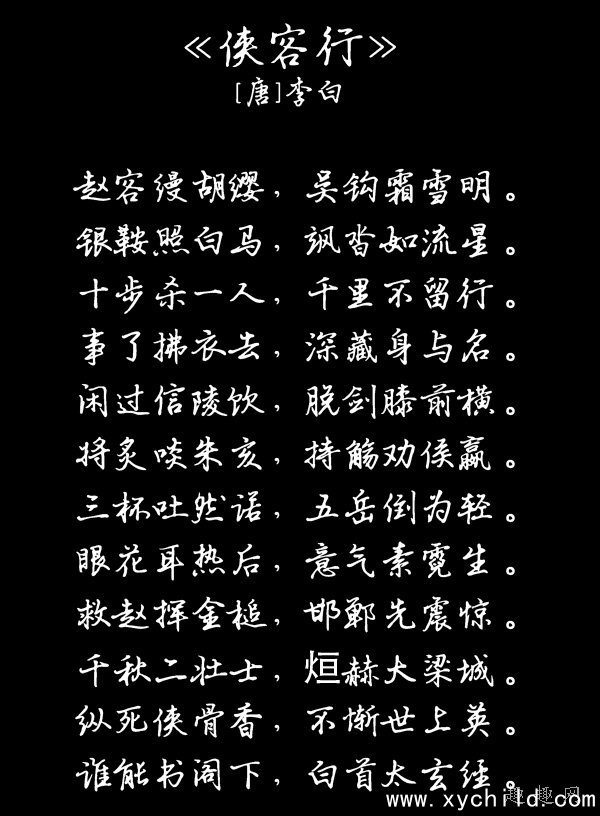 《侠客行》
[唐]李白
赵客缦胡缨，吴钩霜雪明。
银鞍照白马，飒沓如流星。
十步杀一人，千里不留行。
事了拂衣去，深藏身与名。
闲过信陵饮，脱剑膝前横。
将炙啖朱亥，持觞劝侯嬴。
三杯吐然诺，五岳倒为轻。
眼花耳热后，意气素霓生。
救赵挥金槌，邯郸先震惊。
千秋二壮士，烜赫大梁城。
纵死侠骨香，不惭世上英。
谁能书阁下，白首太玄经。
趣趣网
www.xychild.com